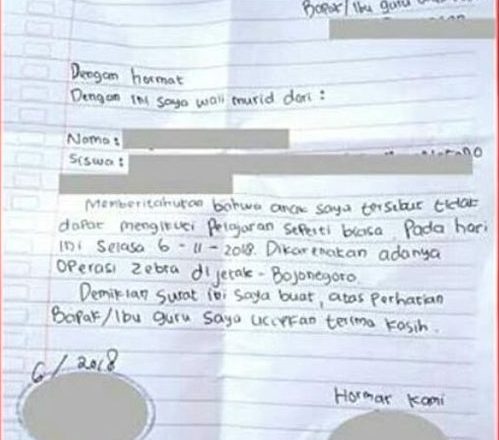 Bapak/Ibu guru
Dengan hormat
Dengan ini saya wali murid dari :
Nama :
Siswa :
Memberitahukan bahwa anak saya tersebut tidak
dapat mengikuti Pelajaran seperti biasa. Pada hari
ini Selasa 6 - 11 - 2018. Dikarenakan adanya
Operasi Zebra di jetak - Bojonegoro.
Demikian Surat ini Saya buat, atas Perhatian
Bapak/Ibu guru Saya ucapkan terima kasih.
6/ 2018
Hormat Kami